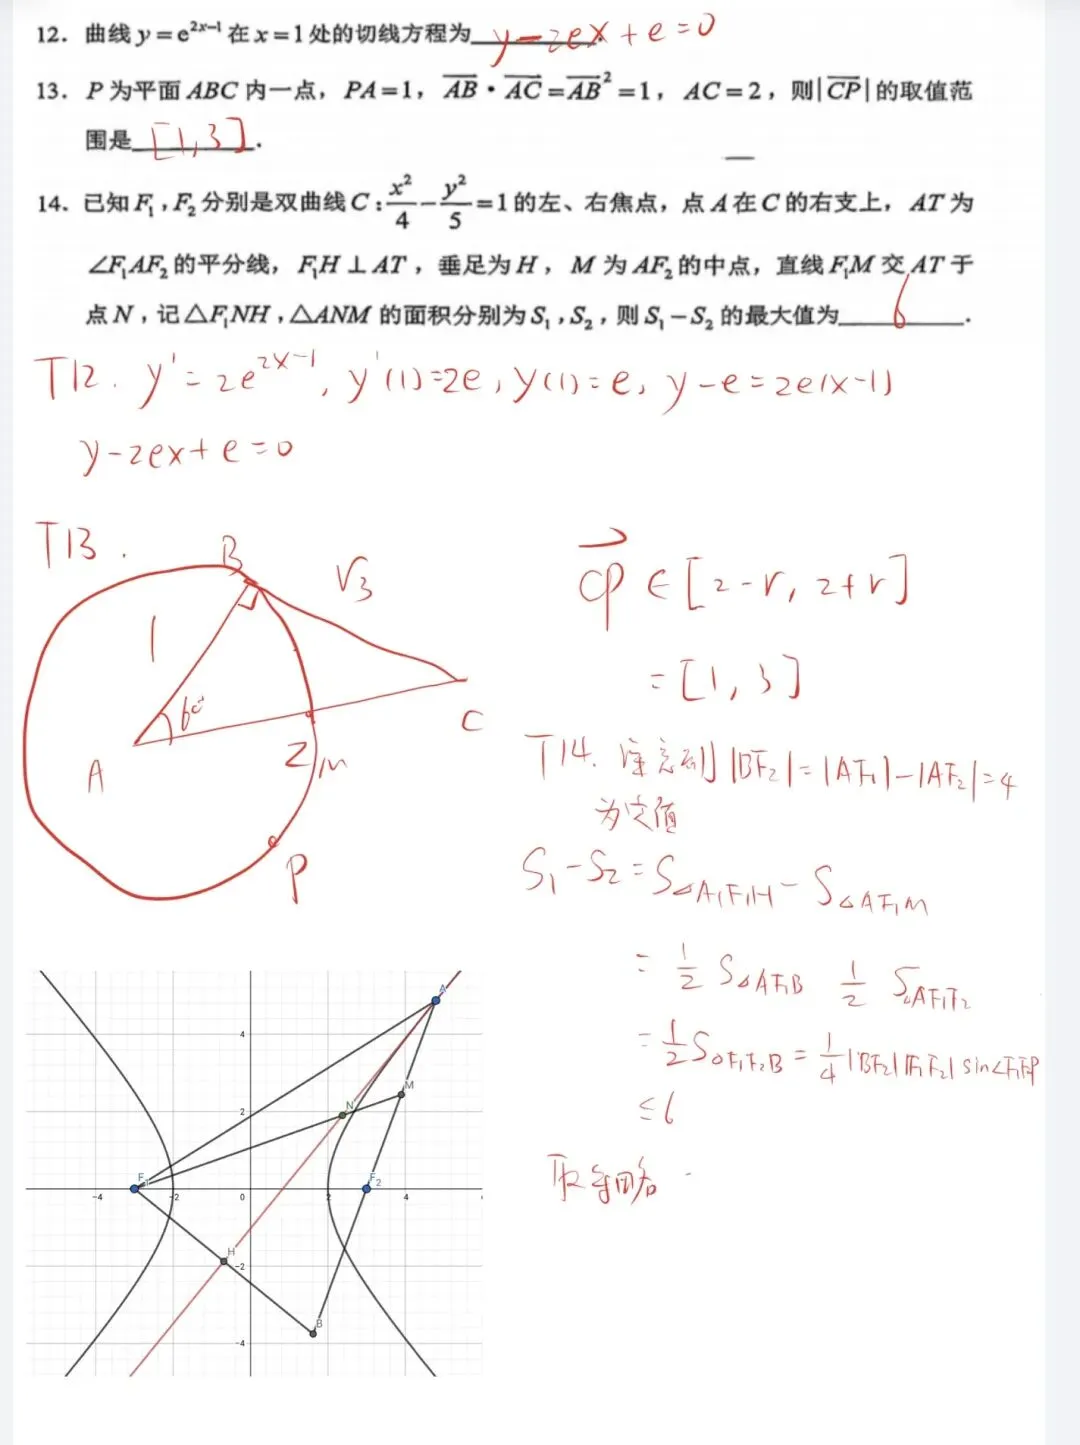 12. 曲线 y=e^{2x-1} 在 x=1 处的切线方程为 y-2ex+e=0
13. P 为平面 ABC 内一点, PA=1, \overline{AB}·\overline{AC}=\overline{AB}^2=1, AC=2, 则|\overline{CP}|的取值范
围是 [1,3].
14. 已知 F₁,F₂ 分别是双曲线 C: x²/4 - y²/5 =1 的左、右焦点, 点 A 在 C 的右支上, AT 为
∠F₁AF₂ 的平分线, F₁H⊥AT, 垂足为 H, M 为 AF₂ 的中点, 直线 F₁M 交 AT 于
点 N, 记△F₁NH, △ANM 的面积分别为 S₁,S₂, 则 S₁-S₂ 的最大值为 6.
T12. y'=2e^{2x-1}, y'(1)=2e, y(1)=e, y-e=2e(x-1)
y-2ex+e=0
T13.
B
√3
1
60°
A
2
M
C
P
\overrightarrow{CP}∈[2-r, 2+r]
=[1,3]
T14. 注意到|BF₂|=|AF₁|-|AF₂|=4
为定值
S₁-S₂=S△A₁F₁H-S△AF₁M
=1/2 S△AF₁B 1/2 S△AF₁F₂
=1/2 S△F₁F₂B=1/4|BF₂||F₁F₂|sin∠
≤6
取等略.
A
M
N
F₁
F₂
H
B
4
2
-4
-2
0
2
4
-2
-4